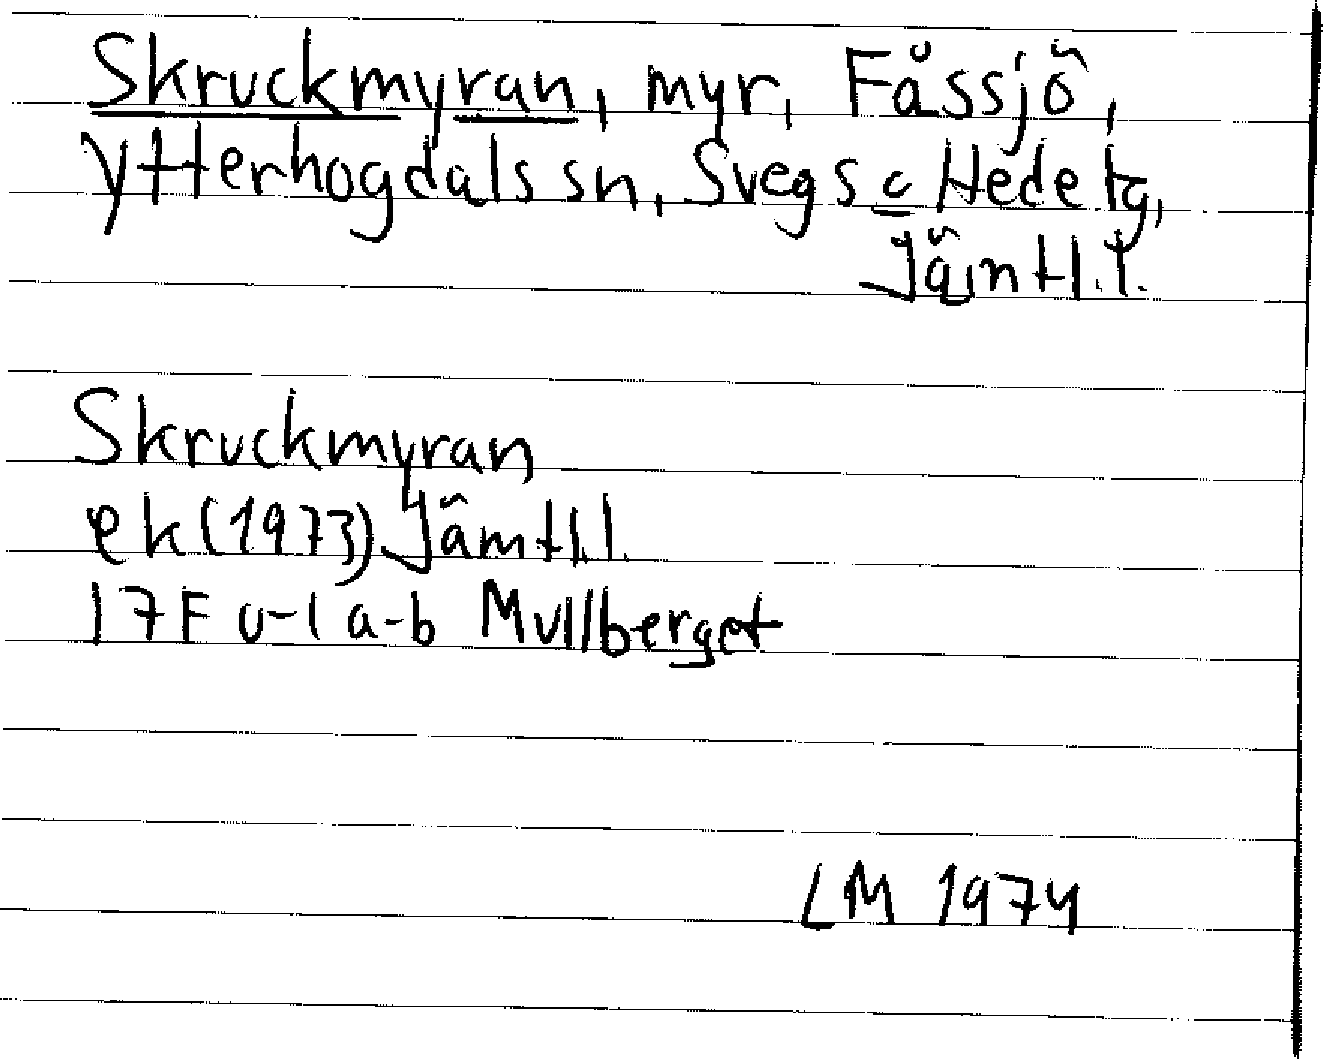 Skruckmyran, myr, Fåssjö,
Ytterhogdals sn, Svegs o Hede tg,
Jämtl.l.
Skruckmyran
ek(1973) Jämtl.l.
17F u-l a-b Mullberget
LM 1974